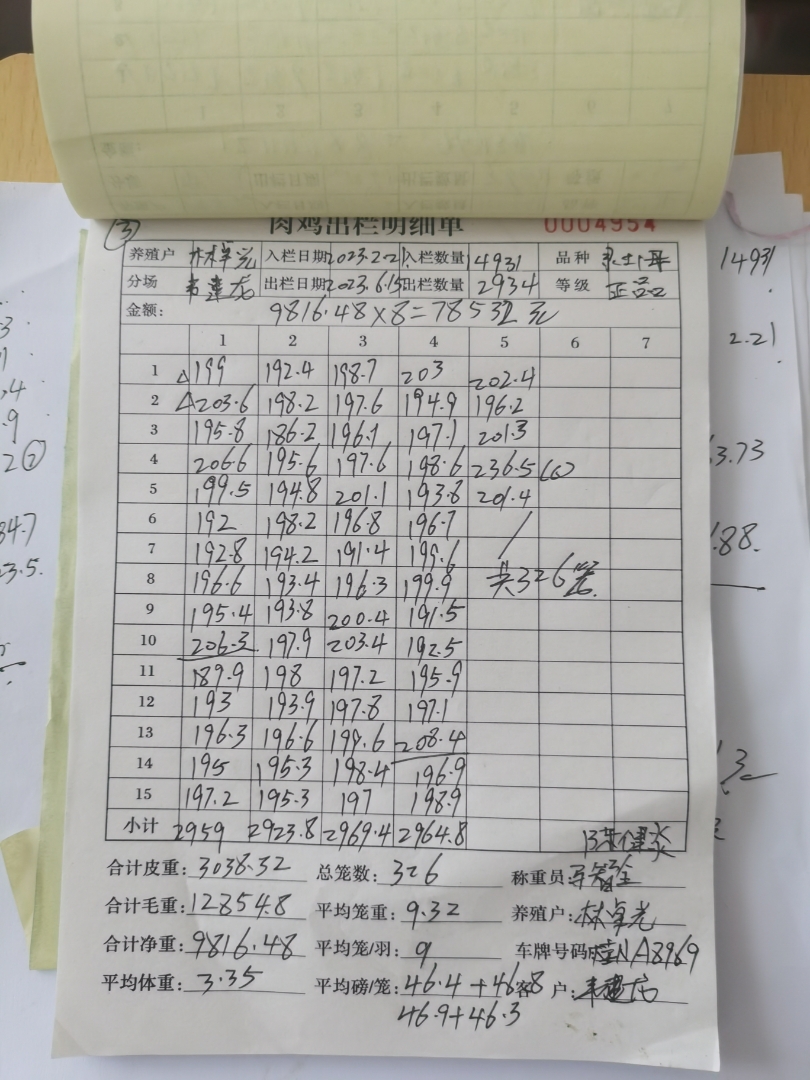 ③ 肉鸡出栏明细单 0004954
养殖户 林卓光 入栏日期 2023.2.21. 入栏数量 14931 品种
分场 出栏日期 2023.6.15 出栏数量 2934 等级 正品
金额: 9816.48×8=78532元
1 2 3 4 5 6 7
1 △199 192.4 198.7 203 202.4
2 △203.6 198.2 197.6 194.9 196.2
3 195.8 186.2 196.1 197.1 201.3
4 206.6 195.6 197.6 198.6 236.5
5 199.5 194.8 201.1 193.8 201.4
6 192 198.2 196.8 196.7 /
7 192.8 194.2 191.4 199.6
8 196.6 193.4 196.3 199.9 共326笼.
9 195.4 193.8 200.4 191.5
10 206.3 197.9 203.4 192.5
11 189.9 198 197.2 195.9
12 193 193.9 197.8 197.1
13 196.3 196.6 199.6 208.4
14 195 195.3 198.4 196.9
15 197.2 195.3 197 198.9
小计 2959 2923.8 2969.4 2964.8
合计皮重: 3038.32 总笼数: 326 称重员:
合计毛重: 12854.8 平均笼重: 9.32 养殖户: 林卓光
合计净重: 9816.48 平均笼/羽: 9 车牌号码: 桂NA8969
平均体重: 3.35 平均磅/笼: 46.4+46.8 客户:
46.9+46.3
14931
2.21
3.73
.88.